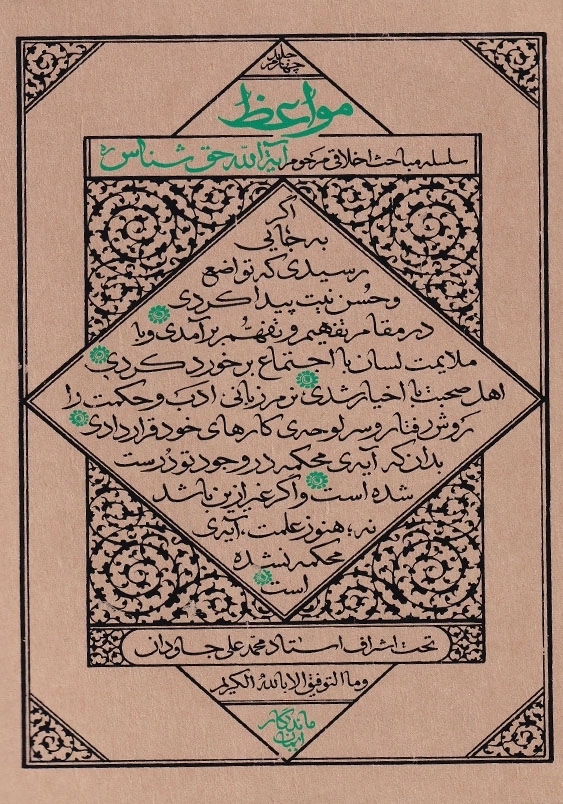 جلد
چهارم
مواعظ
سلسله مباحث اخلاقی مرحوم آیة الله حق شناس ره
اگر
به جایی
رسیدی که تواضع
و حُسن نیت پیدا کردی
در مقام تفهیم و تفهّم برآمدی و با
ملایمت لسان با اجتماع برخورد کردی
اهل صحبت با اخیار شدی نرم زبانی ادب و حکمت را
روش رفتار و سرلوحه‌ی کارهای خود قرار دادی
بدان که آیه‌ی محکمه در وجود تو درست
شده است و اگر غیر ازین باشد
نه؛ هنوز علمت، آیه‌ی
محکمه نشده
است
تحت اشراف استاد محمد علی جاودان
وما التوفیق الا بالله الکریم
ماندگار